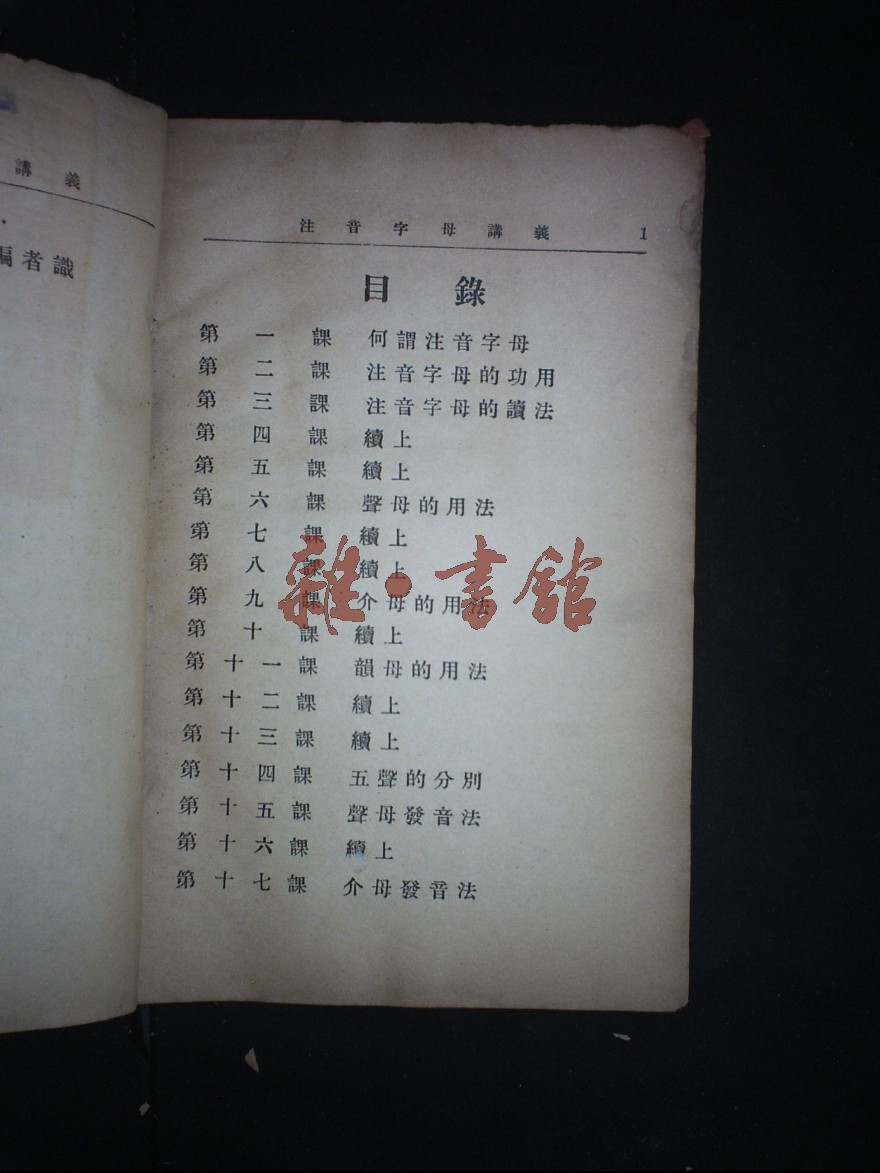 講義
編者識
注音字母講義 1
目錄
第一課 何謂注音字母
第二課 注音字母的功用
第三課 注音字母的讀法
第四課 續上
第五課 續上
第六課 聲母的用法
第七課 續上
第八課 續上
第九課 介母的用法
第十課 續上
第十一課 韻母的用法
第十二課 續上
第十三課 續上
第十四課 五聲的分別
第十五課 聲母發音法
第十六課 續上
第十七課 介母發音法
雜·書館